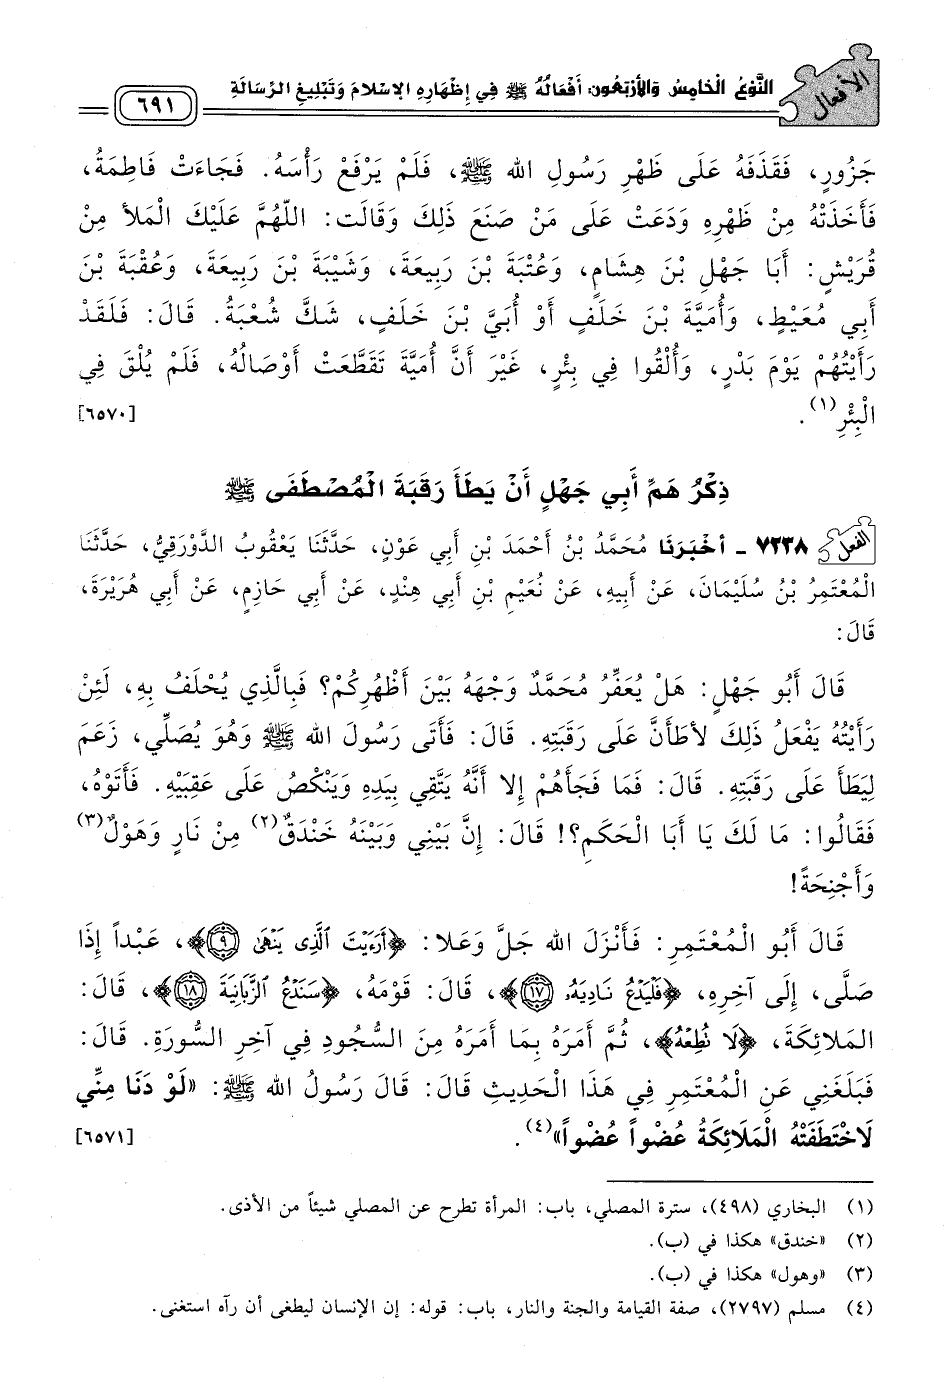 الأفعال
النَّوْعُ الْخَامِسُ وَالأَرْبَعُون: أَفْعَالُهُ ﷺ فِي إِظْهَارِهِ الإِسْلَامَ وَتَبْلِيغِ الرِّسَالَةِ
٦٩١
جَزُورٍ، فَقَذَفَهُ عَلَى ظَهْرِ رَسُولِ الله ﷺ، فَلَمْ يَرْفَعْ رَأْسَهُ. فَجَاءَتْ فَاطِمَةُ،
فَأَخَذَتْهُ مِنْ ظَهْرِهِ وَدَعَتْ عَلَى مَنْ صَنَعَ ذَلِكَ وَقَالَت: اللّهُمَّ عَلَيْكَ الْمَلأَ مِنْ
قُرَيْشٍ: أَبَا جَهْلِ بْنَ هِشَامٍ، وَعُتْبَةَ بْنَ رَبِيعَةَ، وَشَيْبَةَ بْنَ رَبِيعَةَ، وَعُقْبَةَ بْنَ
أَبِي مُعَيْطٍ، وَأُمَيَّةَ بْنَ خَلَفٍ أَوْ أُبَيَّ بْنَ خَلَفٍ، شَكَّ شُعْبَةُ. قَالَ: فَلَقَدْ
رَأَيْتُهُمْ يَوْمَ بَدْرٍ، وَأُلْقُوا فِي بِئْرٍ، غَيْرَ أَنَّ أُمَيَّةَ تَقَطَّعَتْ أَوْصَالُهُ، فَلَمْ يُلْقَ فِي
الْبِئْرِ(١). [٦٥٧٠]
ذِكْرُ هَمِّ أَبِي جَهْلٍ أَنْ يَطَأَ رَقَبَةَ الْمُصْطَفَى ﷺ
الفعل ٧٢٣٨ - أَخْبَرَنَا مُحَمَّدُ بْنُ أَحْمَدَ بْنِ أَبِي عَوْنٍ، حَدَّثَنَا يَعْقُوبُ الدَّوْرَقِيُّ، حَدَّثَنَا
الْمُعْتَمِرُ بْنُ سُلَيْمَانَ، عَنْ أَبِيهِ، عَنْ نُعَيْمِ بْنِ أَبِي هِنْدٍ، عَنْ أَبِي حَازِمٍ، عَنْ أَبِي هُرَيْرَةَ،
قَالَ:
قَالَ أَبُو جَهْلٍ: هَلْ يُعَفِّرُ مُحَمَّدٌ وَجْهَهُ بَيْنَ أَظْهُرِكُمْ؟ فَبِالَّذِي يُحْلَفُ بِهِ، لَئِنْ
رَأَيْتُهُ يَفْعَلُ ذَلِكَ لأَطَأَنَّ عَلَى رَقَبَتِهِ. قَالَ: فَأَتَى رَسُولَ الله ﷺ وَهُوَ يُصَلِّي، زَعَمَ
لِيَطَأَ عَلَى رَقَبَتِهِ. قَالَ: فَمَا فَجَأَهُمْ إِلا أَنَّهُ يَتَّقِي بِيَدِهِ وَيَنْكُصُ عَلَى عَقِبَيْهِ. فَأَتَوْهُ،
فَقَالُوا: مَا لَكَ يَا أَبَا الْحَكَمِ؟! قَالَ: إِنَّ بَيْنِي وَبَيْنَهُ خَنْدَقٌ(٢) مِنْ نَارٍ وَهَوْلٌ(٣)
وَأَجْنِحَةً!
قَالَ أَبُو الْمُعْتَمِرِ: فَأَنْزَلَ الله جَلَّ وَعَلا: ﴿أَرَءَيْتَ ٱلَّذِى يَنْهَىٰ ٩﴾، عَبْداً إِذَا
صَلَّى، إِلَى آخِرِهِ، ﴿فَلْيَدْعُ نَادِيَهُۥ ١٧﴾، قَالَ: قَوْمَهُ، ﴿سَنَدْعُ ٱلزَّبَانِيَةَ ١٨﴾، قَالَ:
المَلائِكَةَ، ﴿لَا تُطِعْهُ﴾، ثُمَّ أَمَرَهُ بِمَا أَمَرَهُ مِنَ السُّجُودِ فِي آخِرِ السُّورَةِ. قَالَ:
فَبَلَغَنِي عَنِ الْمُعْتَمِرِ فِي هَذَا الْحَدِيثِ قَالَ: قَالَ رَسُولُ الله ﷺ: «لَوْ دَنَا مِنِّي
لَاخْتَطَفَتْهُ الْمَلَائِكَةُ عُضْواً عُضْواً»(٤). [٦٥٧١]
(١) البخاري (٤٩٨)، سترة المصلي، باب: المرأة تطرح عن المصلي شيئاً من الأذى.
(٢) «خندق» هكذا في (ب).
(٣) «وهول» هكذا في (ب).
(٤) مسلم (٢٧٩٧)، صفة القيامة والجنة والنار، باب: قوله: إن الإنسان ليطغى أن رآه استغنى.